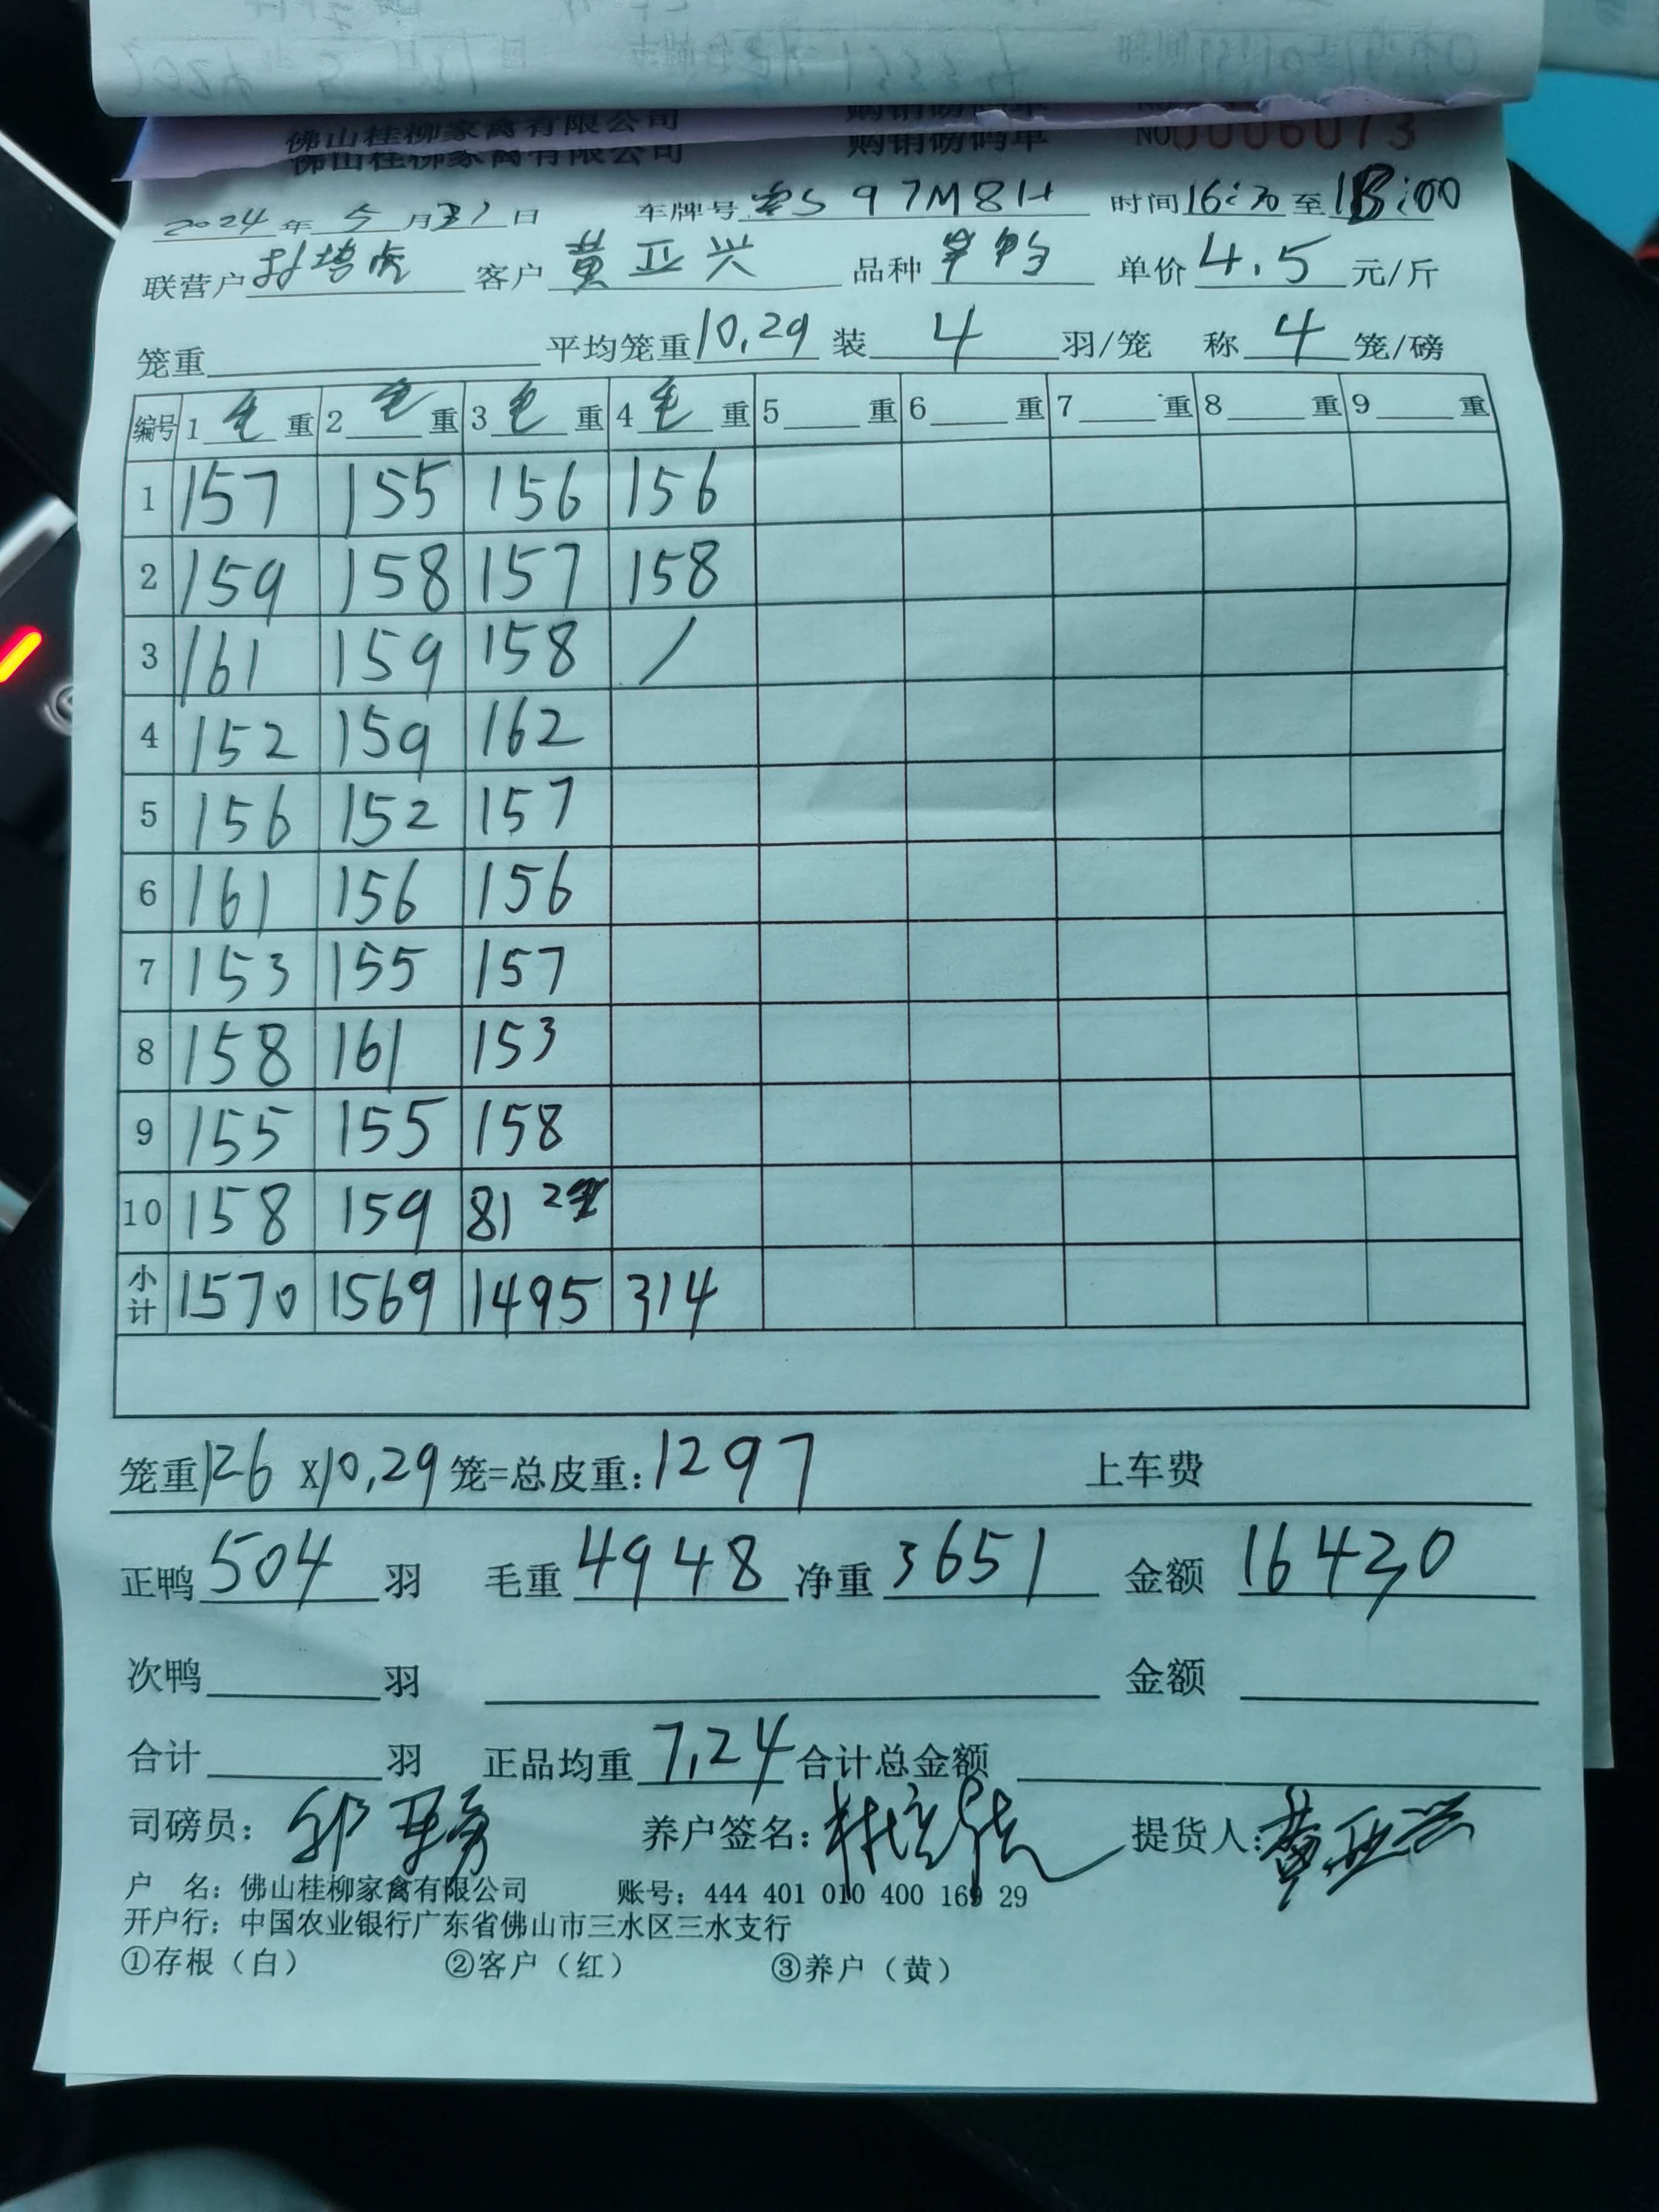 佛山桂柳家禽有限公司 购销磅码单 NO 0006073
2024年5月31日 车牌号 粤S 97M8H 时间16:30至18:00
联营户 客户 黄亚兴 品种 单价 4.5 元/斤
笼重 平均笼重 10.29 装 4 羽/笼 称 4 笼/磅
编号 1 毛 重 2 毛 重 3 毛 重 4 毛 重 5 重 6 重 7 重 8 重 9 重
1 157 155 156 156
2 159 158 157 158
3 161 159 158 /
4 152 159 162
5 156 152 157
6 161 156 156
7 153 155 157
8 158 161 153
9 155 155 158
10 158 159 81 2笼
小计 1570 1569 1495 314
笼重 126 X 10.29 笼=总皮重: 1297 上车费
正鸭 504 羽 毛重 4948 净重 3651 金额 16430
次鸭 羽 金额
合计 羽 正品均重 7.24 合计总金额
司磅员: 养户签名: 提货人: 黄亚兴
户 名: 佛山桂柳家禽有限公司 账号: 444 401 010 400 169 29
开户行: 中国农业银行广东省佛山市三水区三水支行
①存根(白) ②客户(红) ③养户(黄)